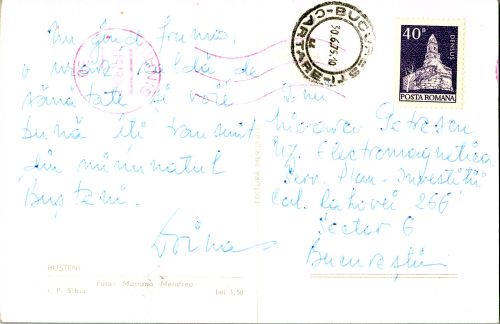 Un gând frumos,
o mare caldă de
sănătate și voie
bună îți transmit
din minunatul
Bușteni.
Doina
BUȘTENI
Foto: Mariana Mendrea
I. P. Sibiu
Lei 1,50
EDITURA MERIDIANE
BUCUREȘTI
CARTARE
30.6.75
40B
DENSUȘ
POSTA ROMANA
Petrescu
Uz. Electromagnetica
Serv. Plan - Investiții
Cal. Rahovei 266
Sector 6
București